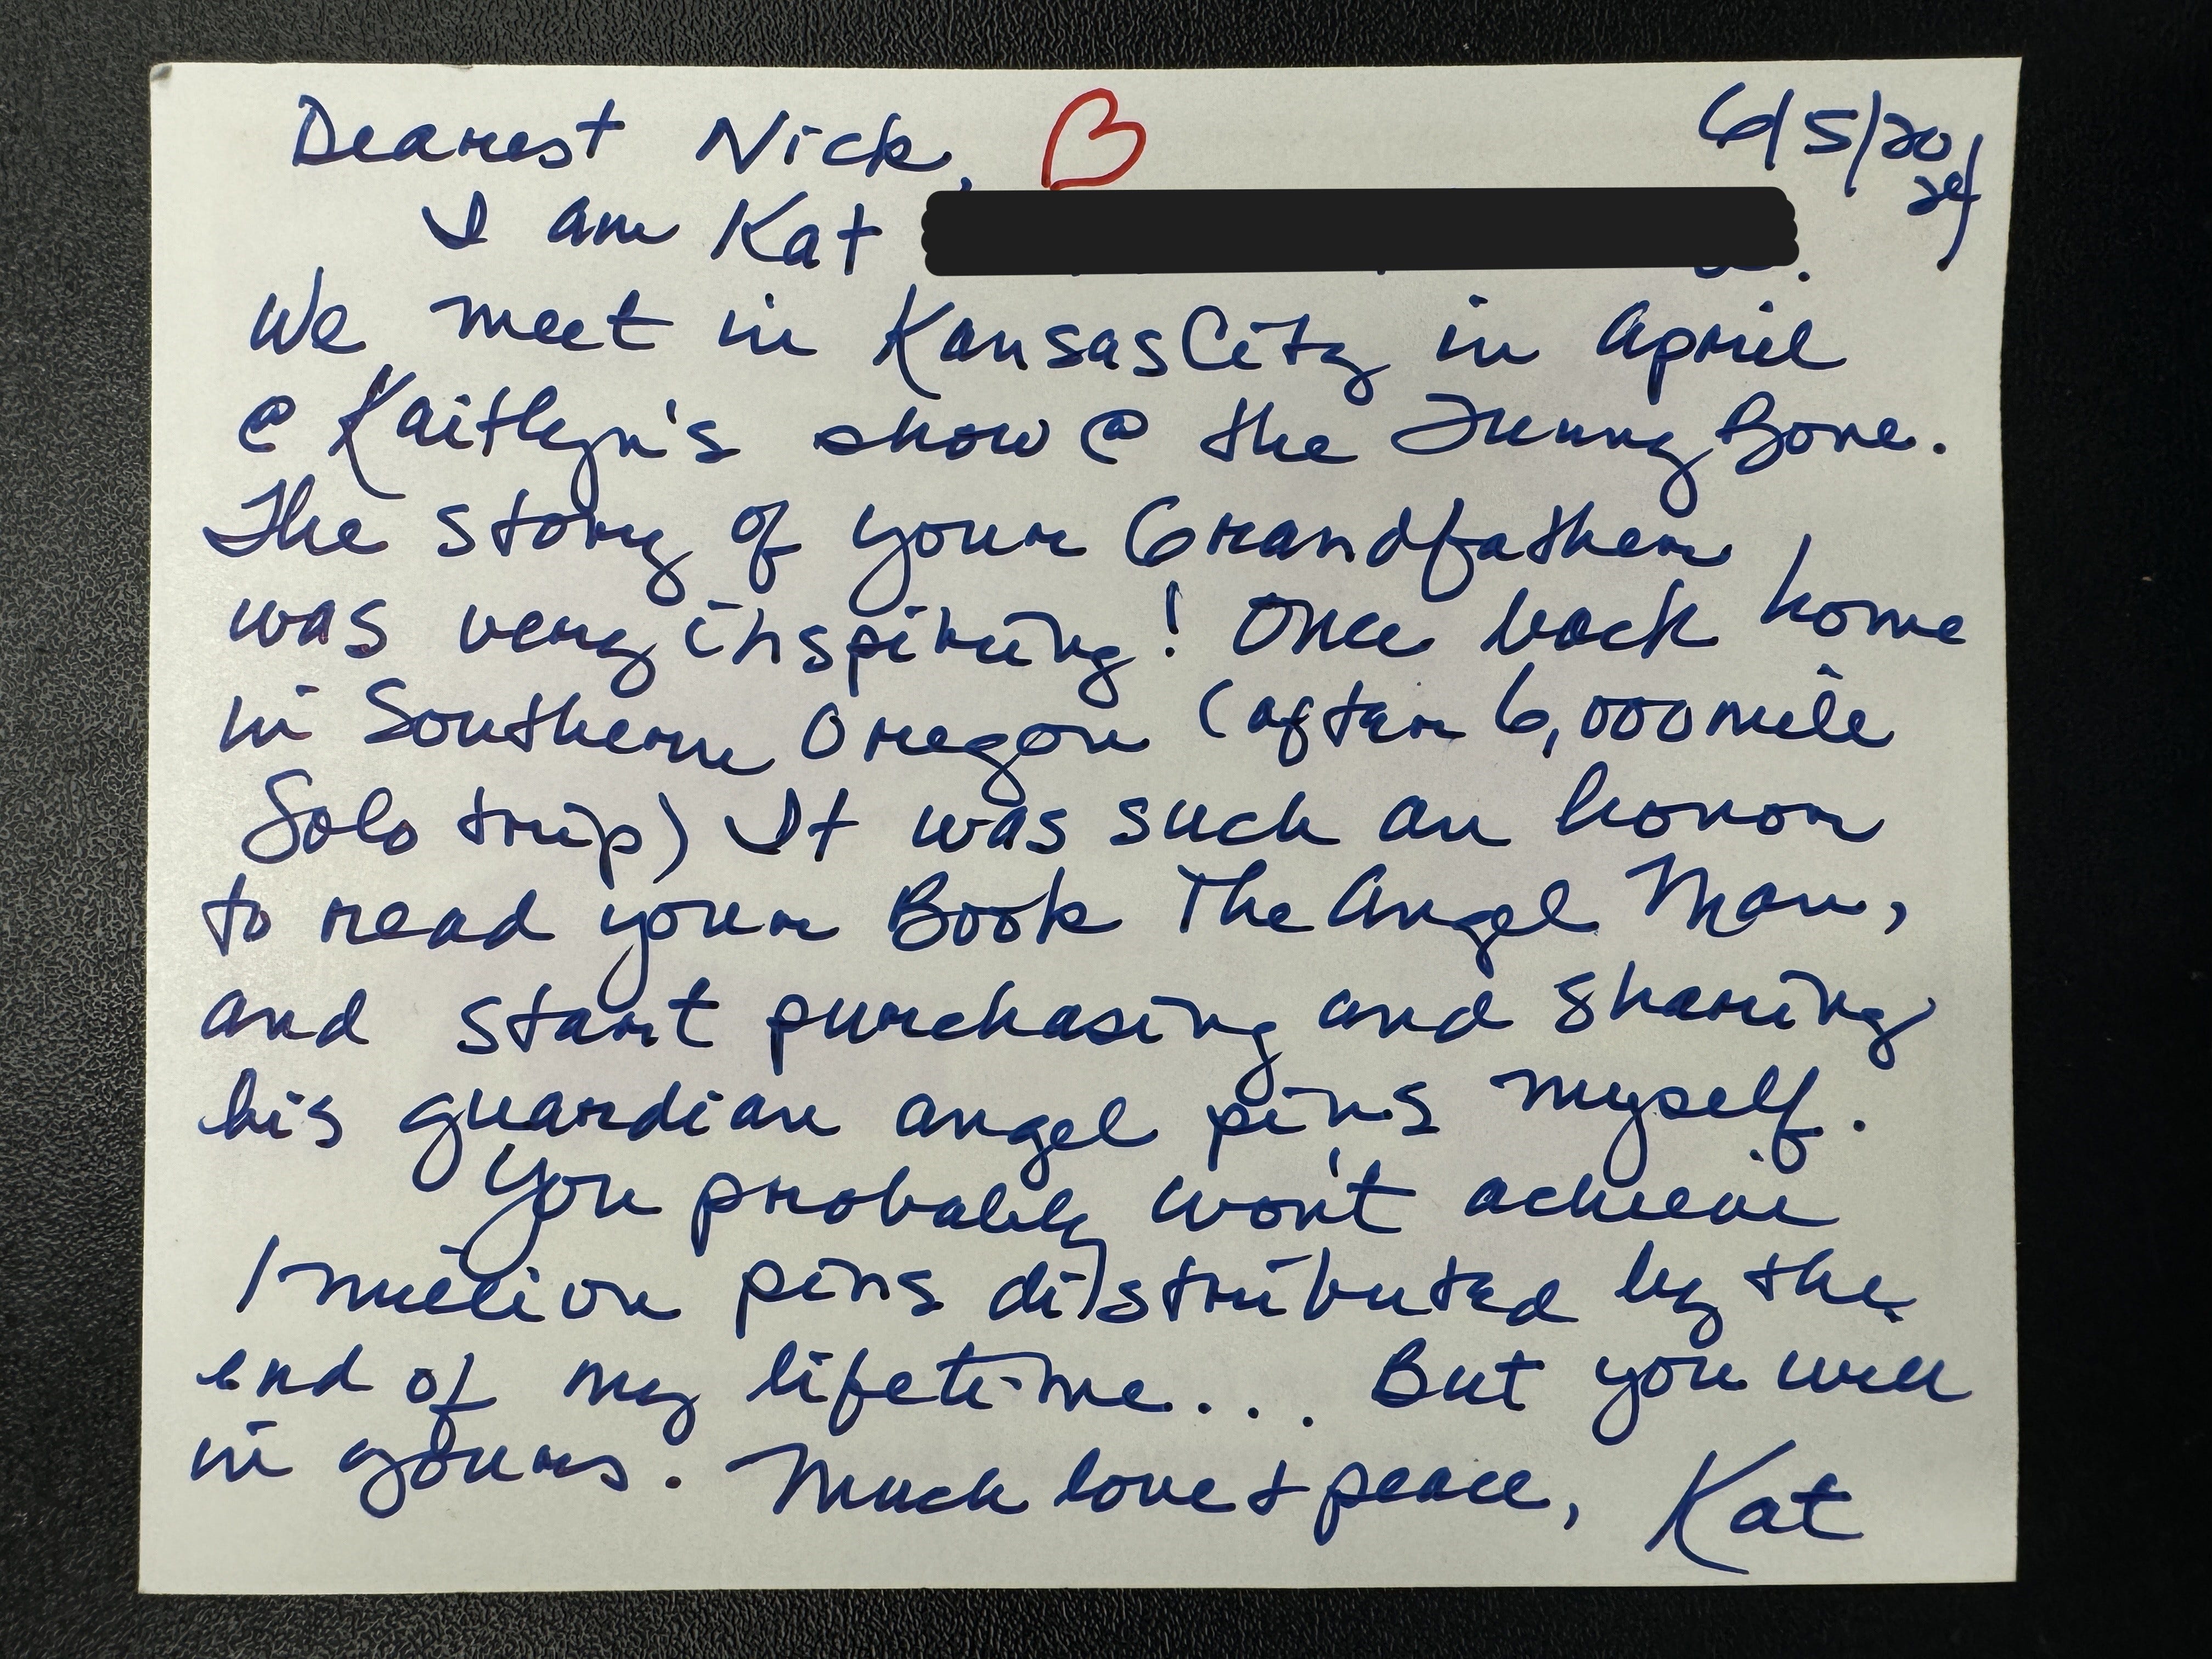 Dearest Nick, 6/5/2024
I am Kat
We meet in Kansas City in April
@ Kaitlyn's show @ the Funny Bone.
The story of your Grandfather
was very inspiring! Once back home
in Southern Oregon (after 6,000 mile
Solo trip) It was such an honor
to read your Book The Angel Man,
and start purchasing and sharing
his guardian angel pins myself.
You probably won't achieve
1 million pins distributed by the
end of my lifetime... But you will
in yours. Much love & peace, Kat